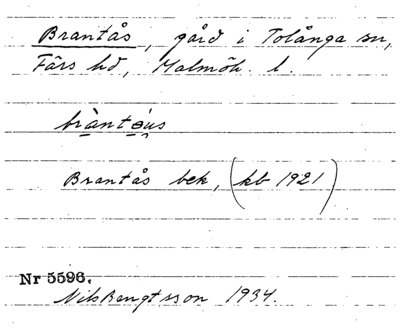 Brantås, gård i Tolånga sn,
Färs hd, Malmöh. l.
bràntǫ́us
Brantås bek, (kb 1921)
Nr 5596.
Nils Bengtsson 1934.